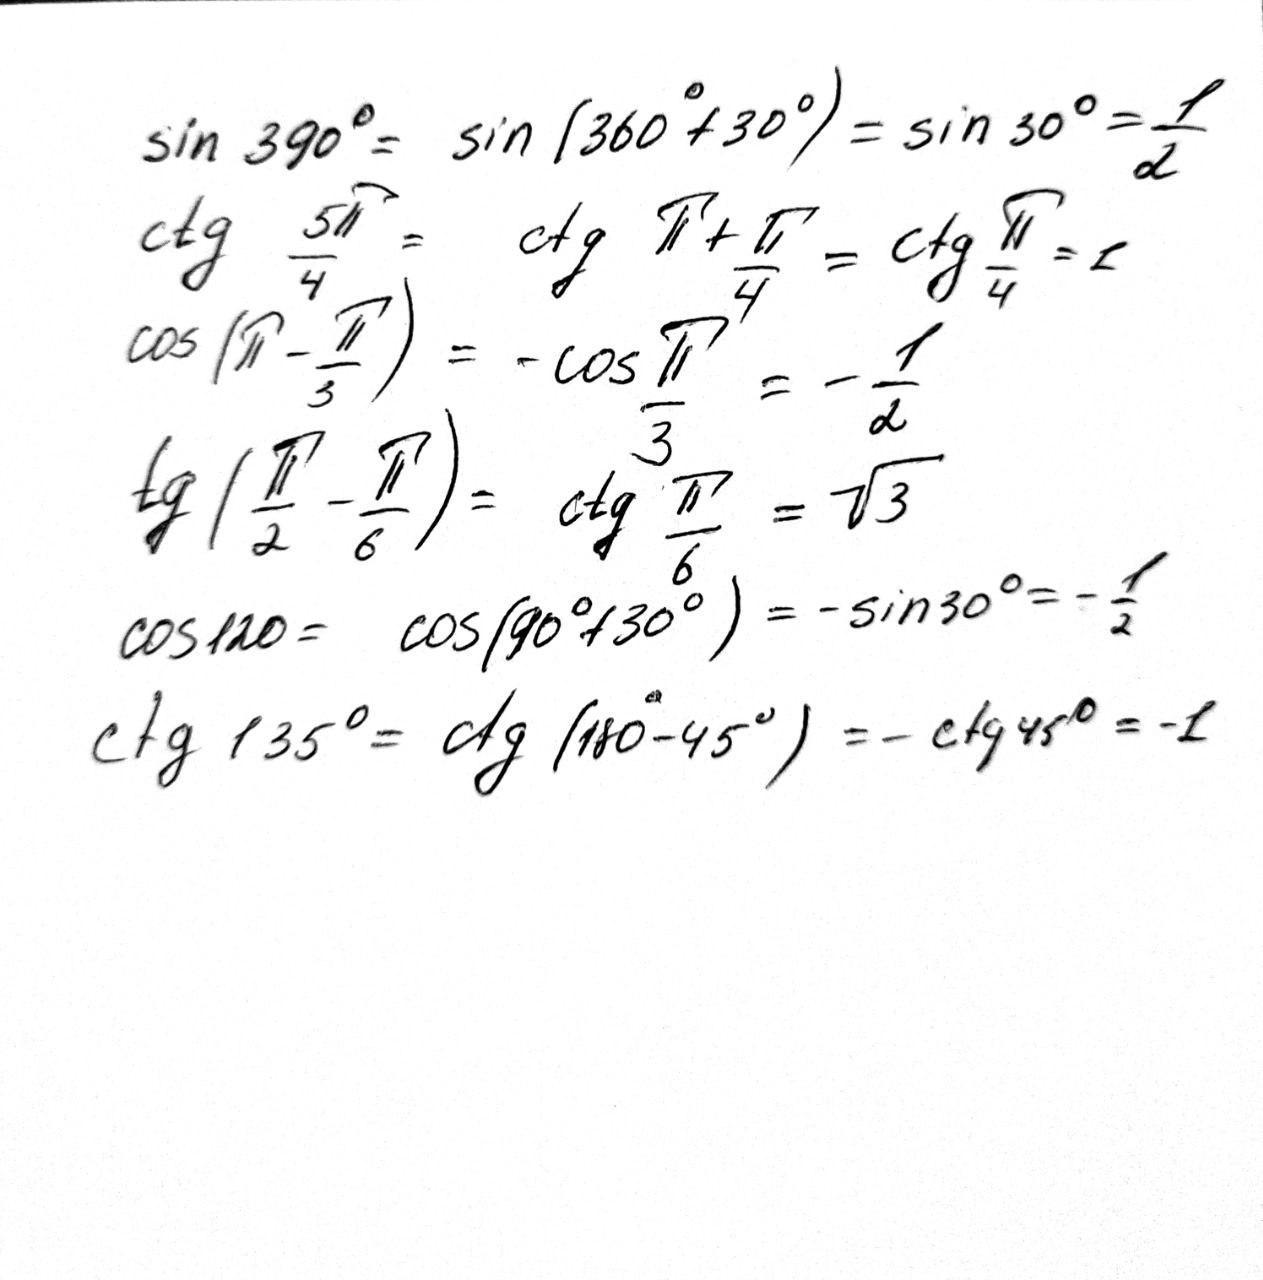 sin 390° = sin (360° + 30°) = sin 30° = 1/2
ctg 5π/4 = ctg π + π/4 = ctg π/4 = 1
cos (π - π/3) = - cos π/3 = - 1/2
tg (π/2 - π/6) = ctg π/6 = √3
cos 120 = cos (90° + 30°) = - sin 30° = - 1/2
ctg 135° = ctg (180° - 45°) = - ctg 45° = -1